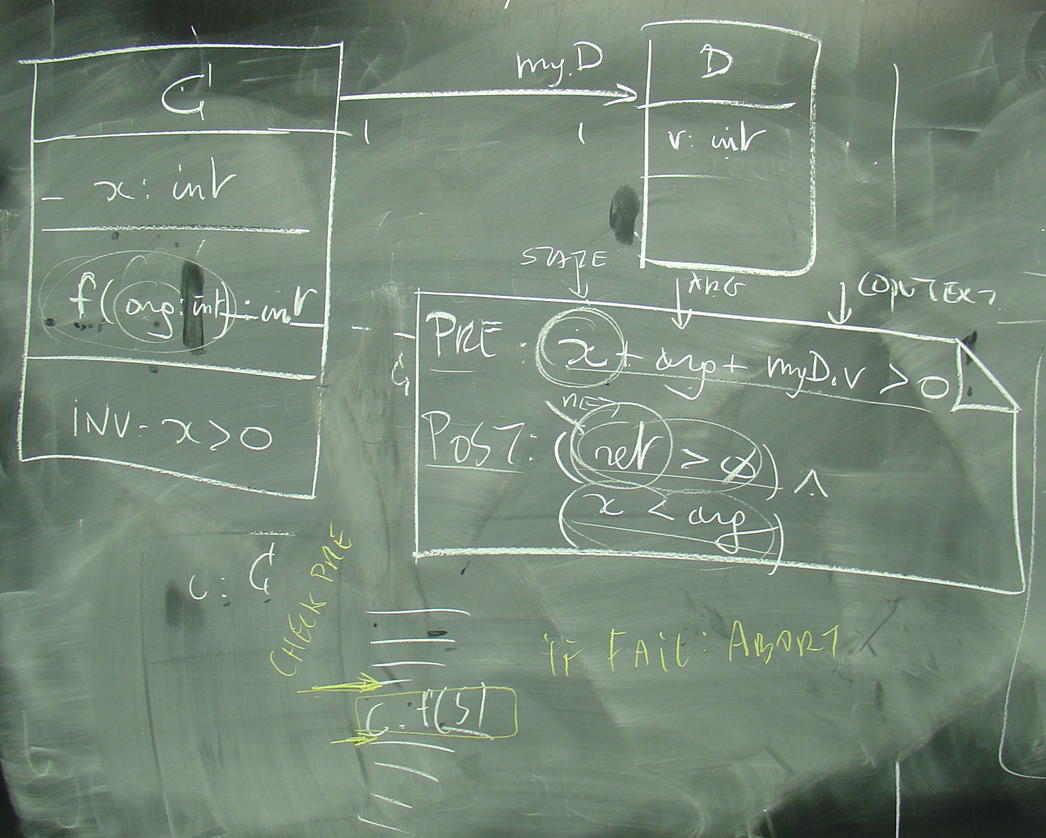 C
- x: int
f(arg: int): int
INV: x>0
myD
1
1
D
v: int
STATE
ARG
CONTEXT
PRE: x + arg + myD.v > 0
POST: (ret > 0) ∧
(x < arg)
c: C
CHECK PRE
IF FAIL: ABORT
c.f(5)